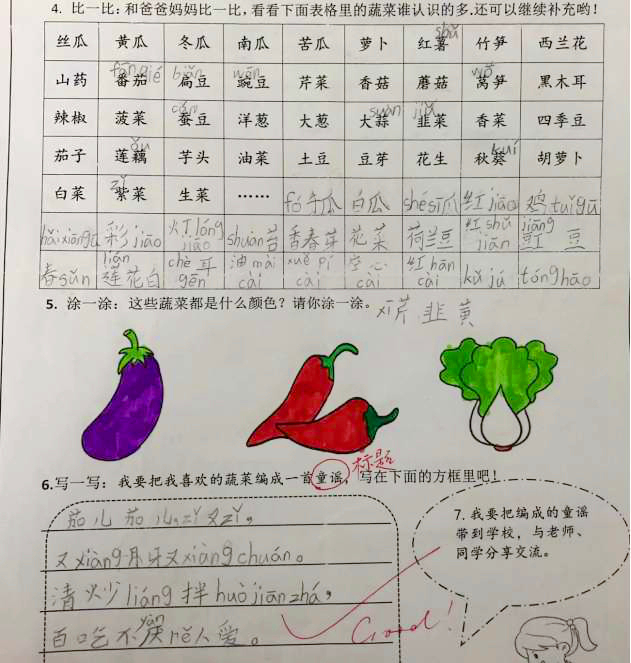 4. 比一比：和爸爸妈妈比一比，看看下面表格里的蔬菜谁认识的多.还可以继续补充哟！
shǔ
丝瓜 黄瓜 冬瓜 南瓜 苦瓜 萝卜 红薯 竹笋 西兰花
fānqié biǎn wān wō
山药 番茄 扁豆 豌豆 芹菜 香菇 蘑菇 莴笋 黑木耳
cán suàn jiǔ
辣椒 菠菜 蚕豆 洋葱 大葱 大蒜 韭菜 香菜 四季豆
ǒu kuí
茄子 莲藕 芋头 油菜 土豆 豆芽 花生 秋葵 胡萝卜
zǐ
白菜 紫菜 生菜 …… fó手瓜 白瓜 shésī瓜 红jiāo 鸡tuǐgū
hǎixiāngū 彩jiāo 灯lóng jiāo shuàn苔 香春芽 花菜 荷兰豆 红shǔ jiān jiāng豆
春sǔn lián莲花白 chè耳gēn 油mài cài xuě pí cài 空心cài 红hān cài kǔ jú tónghāo
5. 涂一涂：这些蔬菜都是什么颜色？请你涂一涂。 xī芹 韭黄
标题
6.写一写：我要把我喜欢的蔬菜编成一首童谣，写在下面的方框里吧！
茄儿茄儿zǐ又zǐ，
又xiàng月牙又xiàngchuán。
清炒liáng拌huòjiānzhá，
百吃不厌rě人爱。
yàn
7. 我要把编成的童谣
带到学校，与老师、
同学分享交流。
Good!